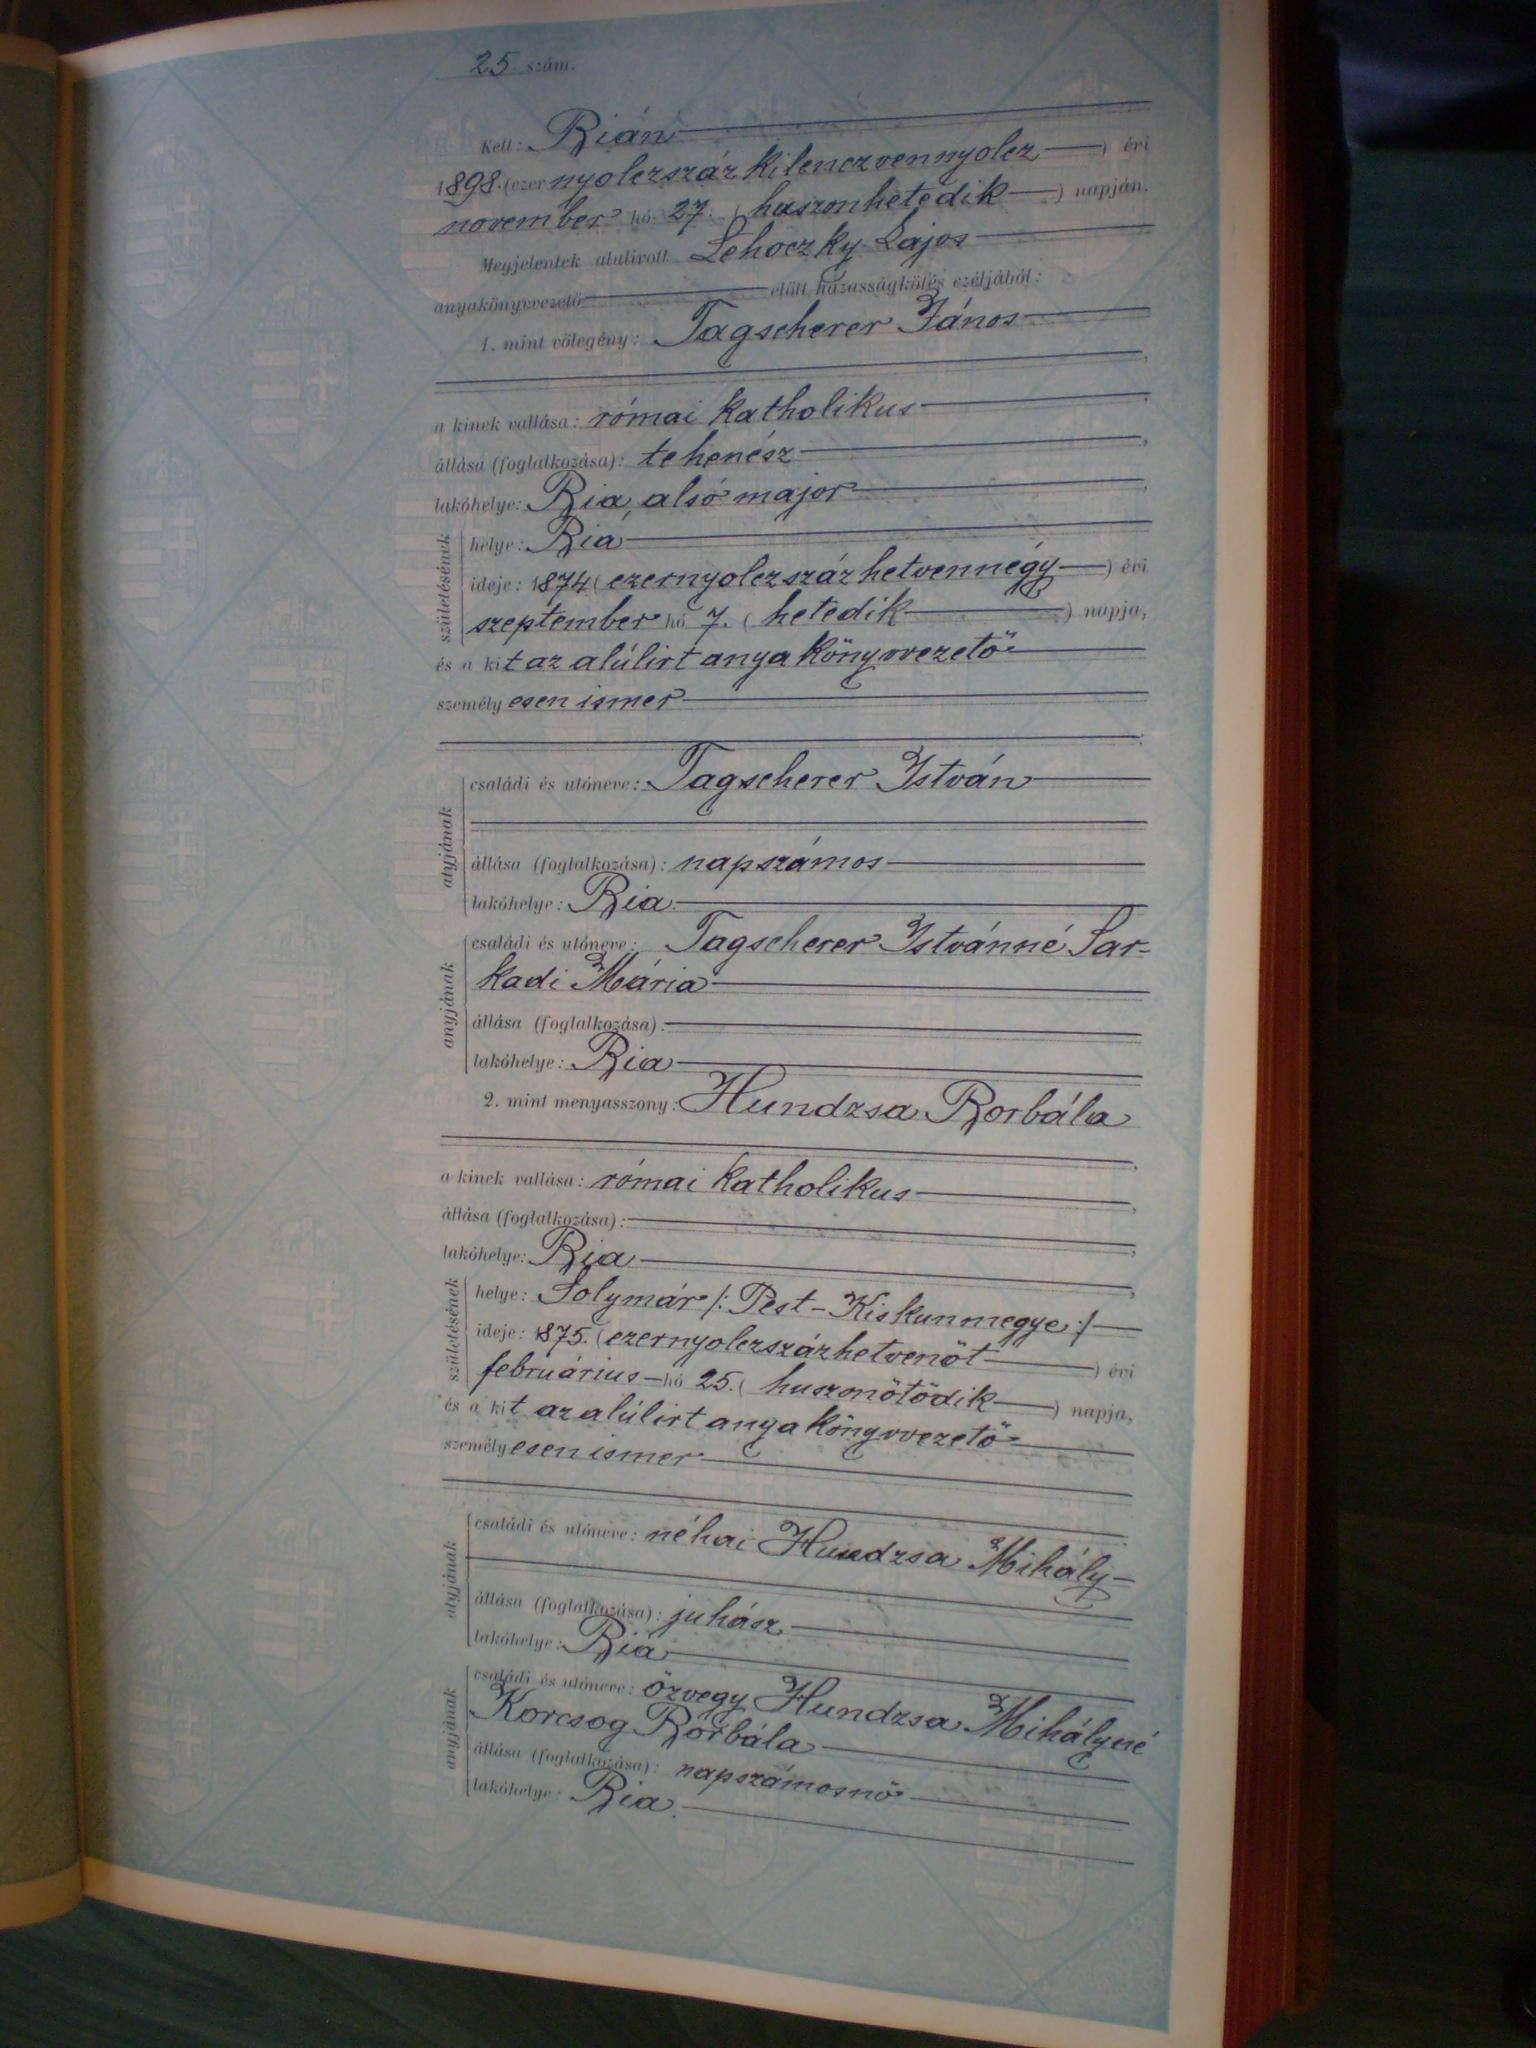 25 szám.
Kelt: Bián
1898. (ezer nyolczszáz kilenczvennyolcz) évi
november hó 27. (huszonhetedik) napján.
Megjelentek alulirott Lehoczky Lajos
anyakönyvvezető előtt házasságkötés czéljából:
1. mint vőlegény: Tagscherer János
a kinek vallása: római katholikus,
állása (foglalkozása): tehenész,
lakóhelye: Bia, alsó major,
születésének
helye: Bia
ideje: 1874 (ezernyolczszázhetvennégy) évi
szeptember hó 7. (hetedik) napja,
és a kit az alúlirt anyakönyvvezető
személyesen ismer
;
atyjának
családi és utóneve: Tagscherer István
állása (foglalkozása): napszámos
lakóhelye: Bia
anyjának
családi és utóneve: Tagscherer Istvánné Sar-
kadi Mária
állása (foglalkozása):
lakóhelye: Bia
2. mint menyasszony: Hundzsa Borbála
,
a kinek vallása: római katholikus,
állása (foglalkozása):,
lakóhelye: Bia,
születésének
helye: Solymár /: Pest-Kiskunmegye :/
ideje: 1875. (ezernyolczszázhetvenöt) évi
februárius hó 25. (huszonötödik) napja,
és a kit az alúlirt anyakönyvvezető
személyesen ismer
;
atyjának
családi és utóneve: néhai Hundzsa Mihály
állása (foglalkozása): juhász
lakóhelye: Bia
anyjának
családi és utóneve: özvegy Hundzsa Mihályné
Korcsog Borbála
állása (foglalkozása): napszámosnő
lakóhelye: Bia